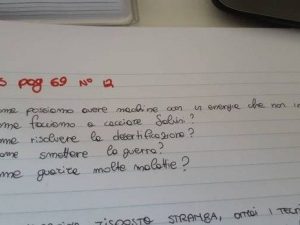 S pag 69 N° 12
ome possiamo avere macchine con un energia che non in
ome facciamo a cacciare Salvini?
ome risolvere la desertificazione?
ome smettere la guerra?
me guarire molte malattie?
RISPOSTA STRAMBA,